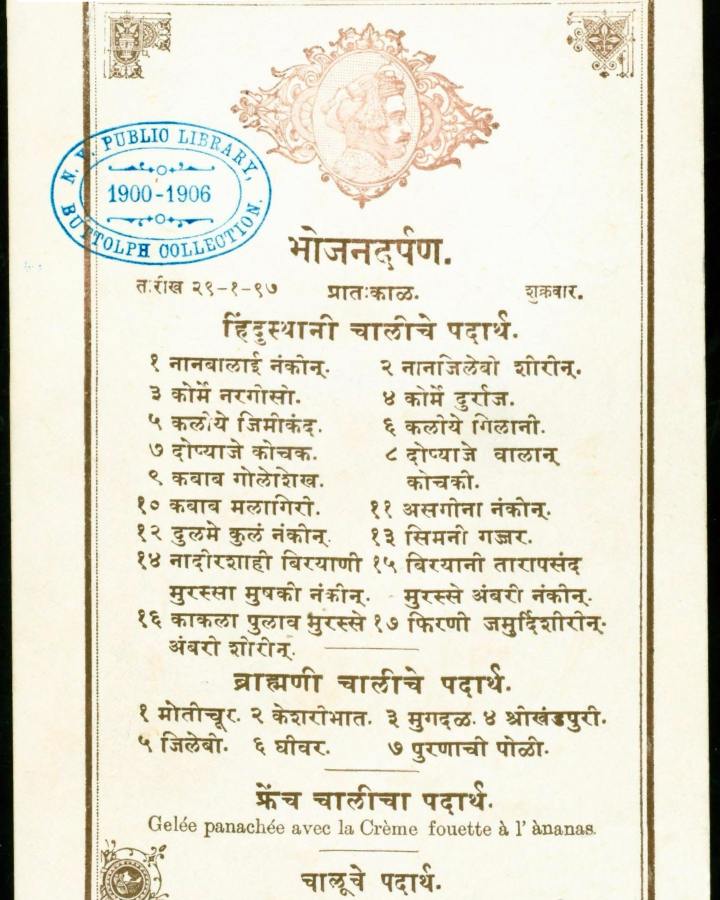 N. Y. PUBLIC LIBRARY,
1900-1906
BUTTOLPH COLLECTION.
भोजनदर्पण.
तारीख २९-१-९७ प्रातःकाळ. शुक्रवार.
हिंदुस्थानी चालीचे पदार्थ.
१ नानबालाई नंकीन्. २ नानजिलेबी शीरीन्.
३ कोर्मे नरगीसी. ४ कोर्मे दुर्राज.
५ कलीये जिमीकंद. ६ कलीये गिलानी.
७ दोप्याजे कोचक. ८ दोप्याजे वालान्
९ कबाब गोलेशिख. कोचकी.
१० कबाब मलागिरी. ११ असगीना नंकीन्.
१२ दुलमे कुलं नंकीन्. १३ सिमनी गज्जर.
१४ नादीरशाही बिरयाणी १५ बिरयानी तारापसंद
मुरस्सा मुषकी नंकीन्. मुरस्से अंबरी नंकीन्.
१६ काकला पुलाव मुरस्से १७ फिरणी जमुर्दिशीरीन्.
अंबरी शीरीन्.
ब्राह्मणी चालीचे पदार्थ.
१ मोतीचूर. २ केशरीभात. ३ मुगदळ. ४ श्रीखंडपुरी.
५ जिलेबी. ६ घीवर. ७ पुरणाची पोळी.
फ्रेंच चालीचा पदार्थ.
Gelée panachée avec la Crème fouette à l' ànanas.
चालूचे पदार्थ.